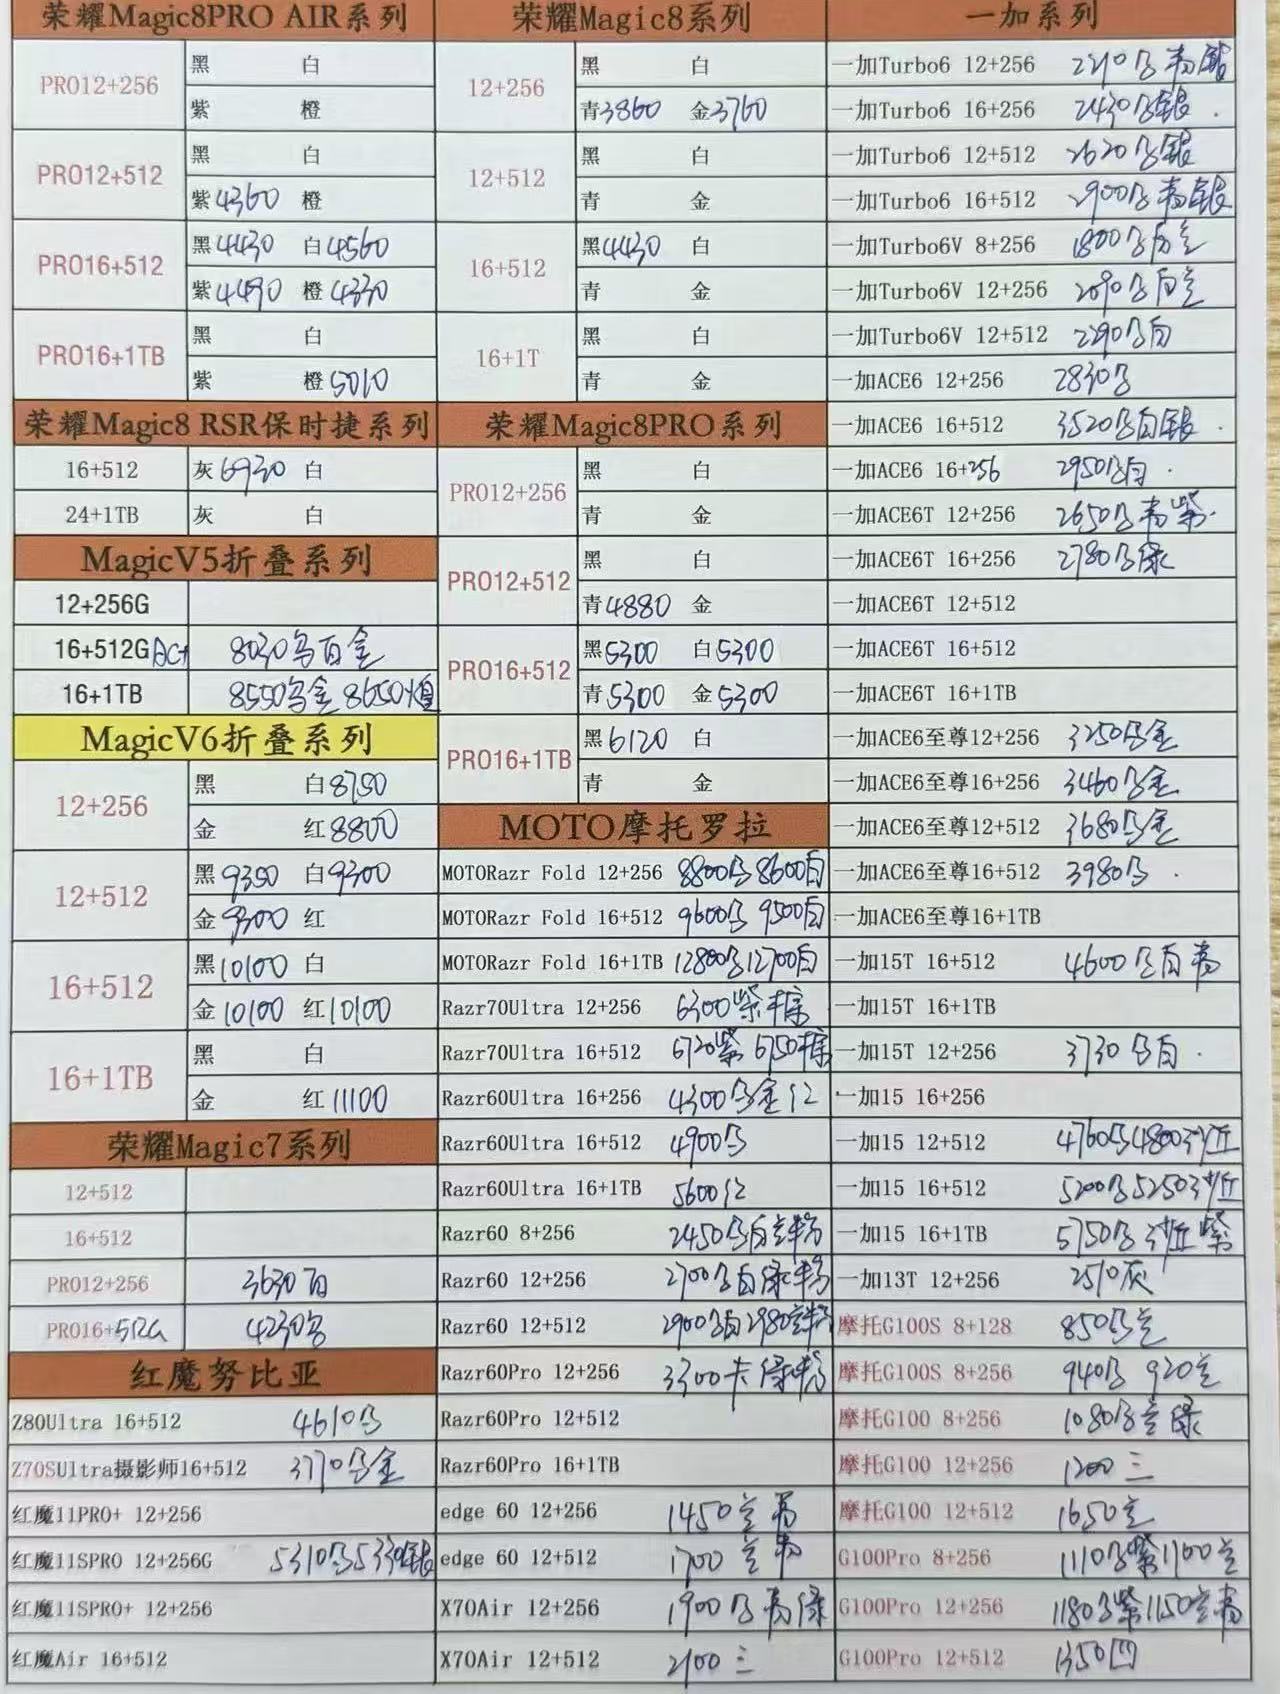 荣耀Magic8PRO AIR系列
PRO12+256
黑 白
紫 橙
PRO12+512
黑 白
紫4360 橙
PRO16+512
黑4430 白4560
紫4490 橙4330
PRO16+1TB
黑 白
紫 橙5010
荣耀Magic8 RSR保时捷系列
16+512 灰6930 白
24+1TB 灰 白
MagicV5折叠系列
12+256G
16+512G 8030乌白金
16+1TB 8550乌金 8650
MagicV6折叠系列
12+256
黑 白8750
金 红8800
12+512
黑9350 白9300
金9300 红
16+512
黑10100 白
金10100 红10100
16+1TB
黑 白
金 红11100
荣耀Magic7系列
12+512
16+512
PRO12+256 3630白
PRO16+512G 4230乌
红魔努比亚
Z80Ultra 16+512 4610乌
Z70SUltra摄影师16+512 3770乌金
红魔11PRO+ 12+256
红魔11SPRO 12+256G 5310乌5330银
红魔11SPRO+ 12+256
红魔Air 16+512
荣耀Magic8系列
12+256
黑 白
青3860 金3760
12+512
黑 白
青 金
16+512
黑4430 白
青 金
16+1T
黑 白
青 金
荣耀Magic8PRO系列
PRO12+256
黑 白
青 金
PRO12+512
黑 白
青4880 金
PRO16+512
黑5300 白5300
青5300 金5300
PRO16+1TB
黑6120 白
青 金
MOTO摩托罗拉
MOTORazr Fold 12+256 8800乌 8600白
MOTORazr Fold 16+512 9600乌 9500白
MOTORazr Fold 16+1TB 12800乌12700白
Razr70Ultra 12+256 6300紫棕
Razr70Ultra 16+512 6720紫 6750棕
Razr60Ultra 16+256 4300乌金红
Razr60Ultra 16+512 4900乌
Razr60Ultra 16+1TB 5600红
Razr60 8+256 2450乌白兰粉
Razr60 12+256 2700乌白绿粉
Razr60 12+512 2900乌白2980兰粉
Razr60Pro 12+256 3300卡绿粉
Razr60Pro 12+512
Razr60Pro 16+1TB
edge 60 12+256 1450兰青
edge 60 12+512 1700兰青
X70Air 12+256 1900乌青绿
X70Air 12+512 2100三
一加系列
一加Turbo6 12+256 2210乌青银
一加Turbo6 16+256 2430乌银
一加Turbo6 12+512 2620乌银
一加Turbo6 16+512 2900乌青银
一加Turbo6V 8+256 1800乌白兰
一加Turbo6V 12+256 2090乌白兰
一加Turbo6V 12+512 2290乌白
一加ACE6 12+256 2830乌
一加ACE6 16+512 3520乌白银
一加ACE6 16+256 2950乌白
一加ACE6T 12+256 2650乌青紫
一加ACE6T 16+256 2780乌绿
一加ACE6T 12+512
一加ACE6T 16+512
一加ACE6T 16+1TB
一加ACE6至尊12+256 3250乌金
一加ACE6至尊16+256 3460乌金
一加ACE6至尊12+512 3680乌金
一加ACE6至尊16+512 3980乌
一加ACE6至尊16+1TB
一加15T 16+512 4600乌白青
一加15T 16+1TB
一加15T 12+256 3730乌白
一加15 16+256
一加15 12+512 4760乌4800沙丘
一加15 16+512 5200乌5250沙丘
一加15 16+1TB 5750乌沙丘紫
一加13T 12+256 2510灰
摩托G100S 8+128 850乌兰
摩托G100S 8+256 940乌 920兰
摩托G100 8+256 1080乌兰绿
摩托G100 12+256 1200三
摩托G100 12+512 1650兰
G100Pro 8+256 1110乌紫1100兰
G100Pro 12+256 1180乌紫1150兰青
G100Pro 12+512 1350四